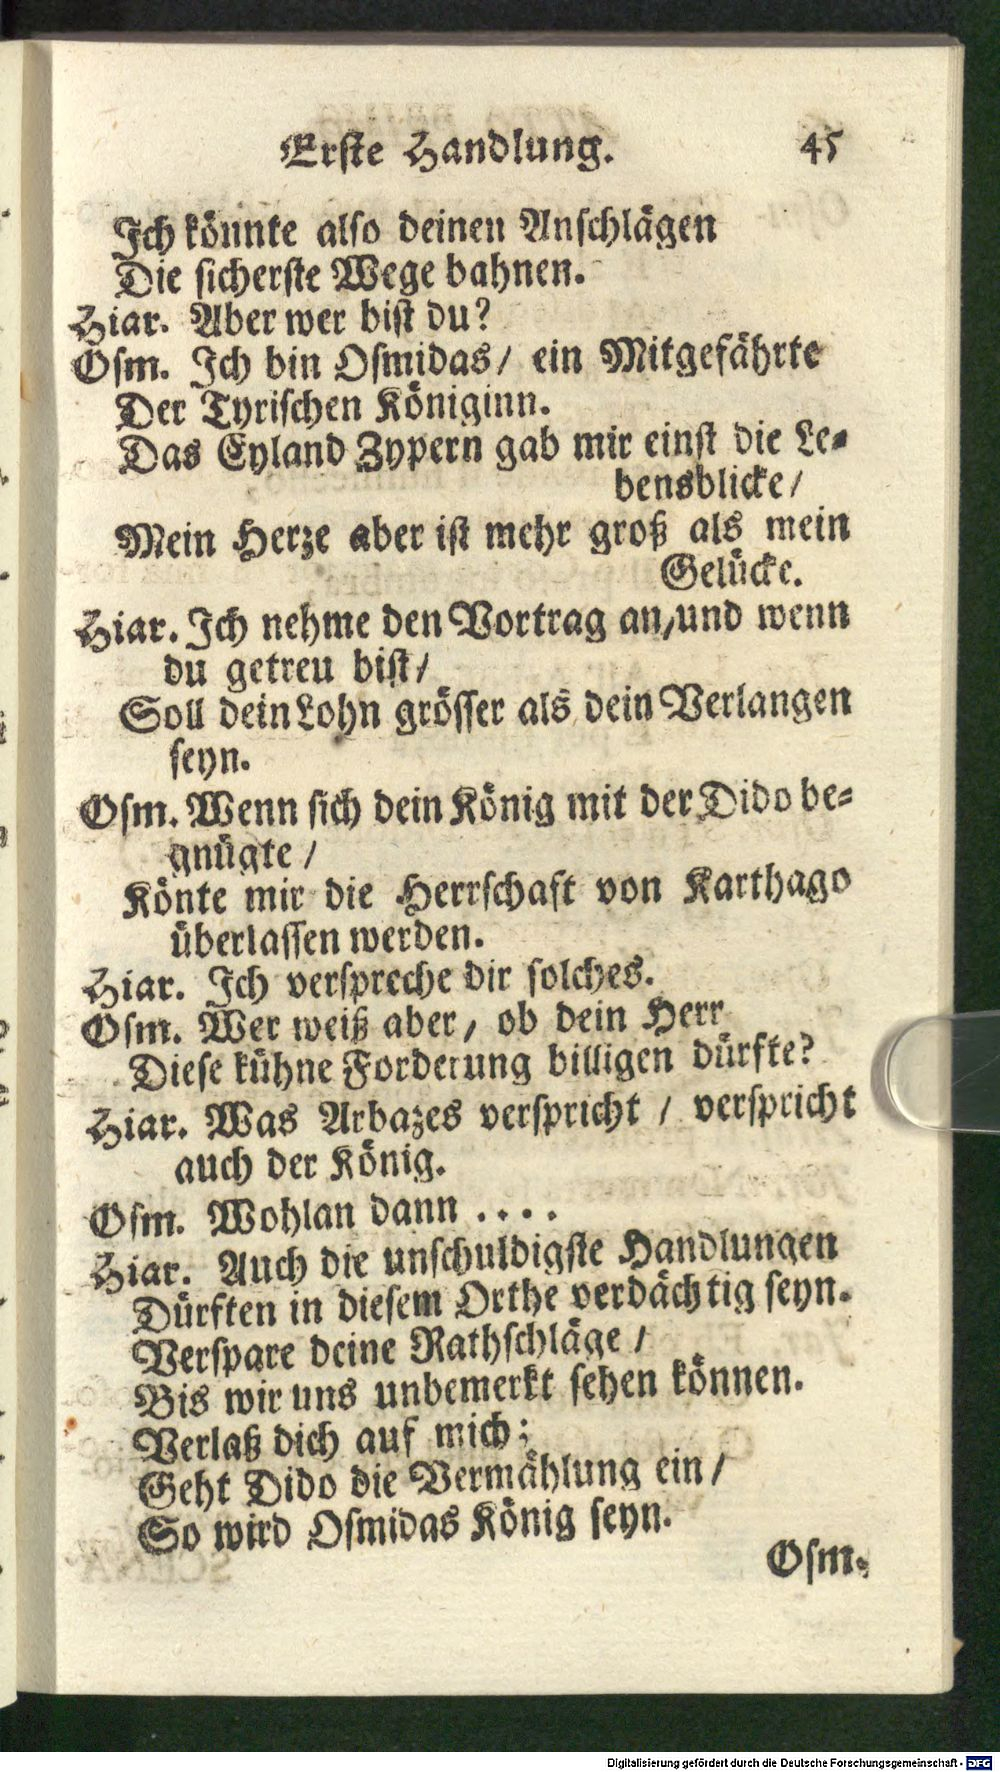 Erste Handlung. 45
Ich könnte also deinen Anschlägen
Die sicherste Wege bahnen.
Hiar. Aber wer bist du?
Osm. Ich bin Osmidas/ ein Mitgefährte
Der Tyrischen Königinn.
Das Eyland Zypern gab mir einst die Le-
bensblicke/
Mein Herze aber ist mehr groß als mein
Gelücke.
Hiar. Ich nehme den Vortrag an/und wenn
du getreu bist/
Soll dein Lohn grösser als dein Verlangen
seyn.
Osm. Wenn sich dein König mit der Dido be-
gnügte/
Könte mir die Herrschaft von Karthago
überlassen werden.
Hiar. Ich verspreche dir solches.
Osm. Wer weiß aber/ ob dein Herr
Diese kühne Forderung billigen dürfte?
Hiar. Was Arbazes verspricht/ verspricht
auch der König.
Osm. Wohlan dann ....
Hiar. Auch die unschuldigste Handlungen
Dürften in diesem Orthe verdächtig seyn.
Verspare deine Rathschläge/
Bis wir uns unbemerkt sehen können.
Verlaß dich auf mich;
Geht Dido die Vermählung ein/
So wird Osmidas König seyn.
Osm.
Digitalisierung gefördert durch die Deutsche Forschungsgemeinschaft - DFG